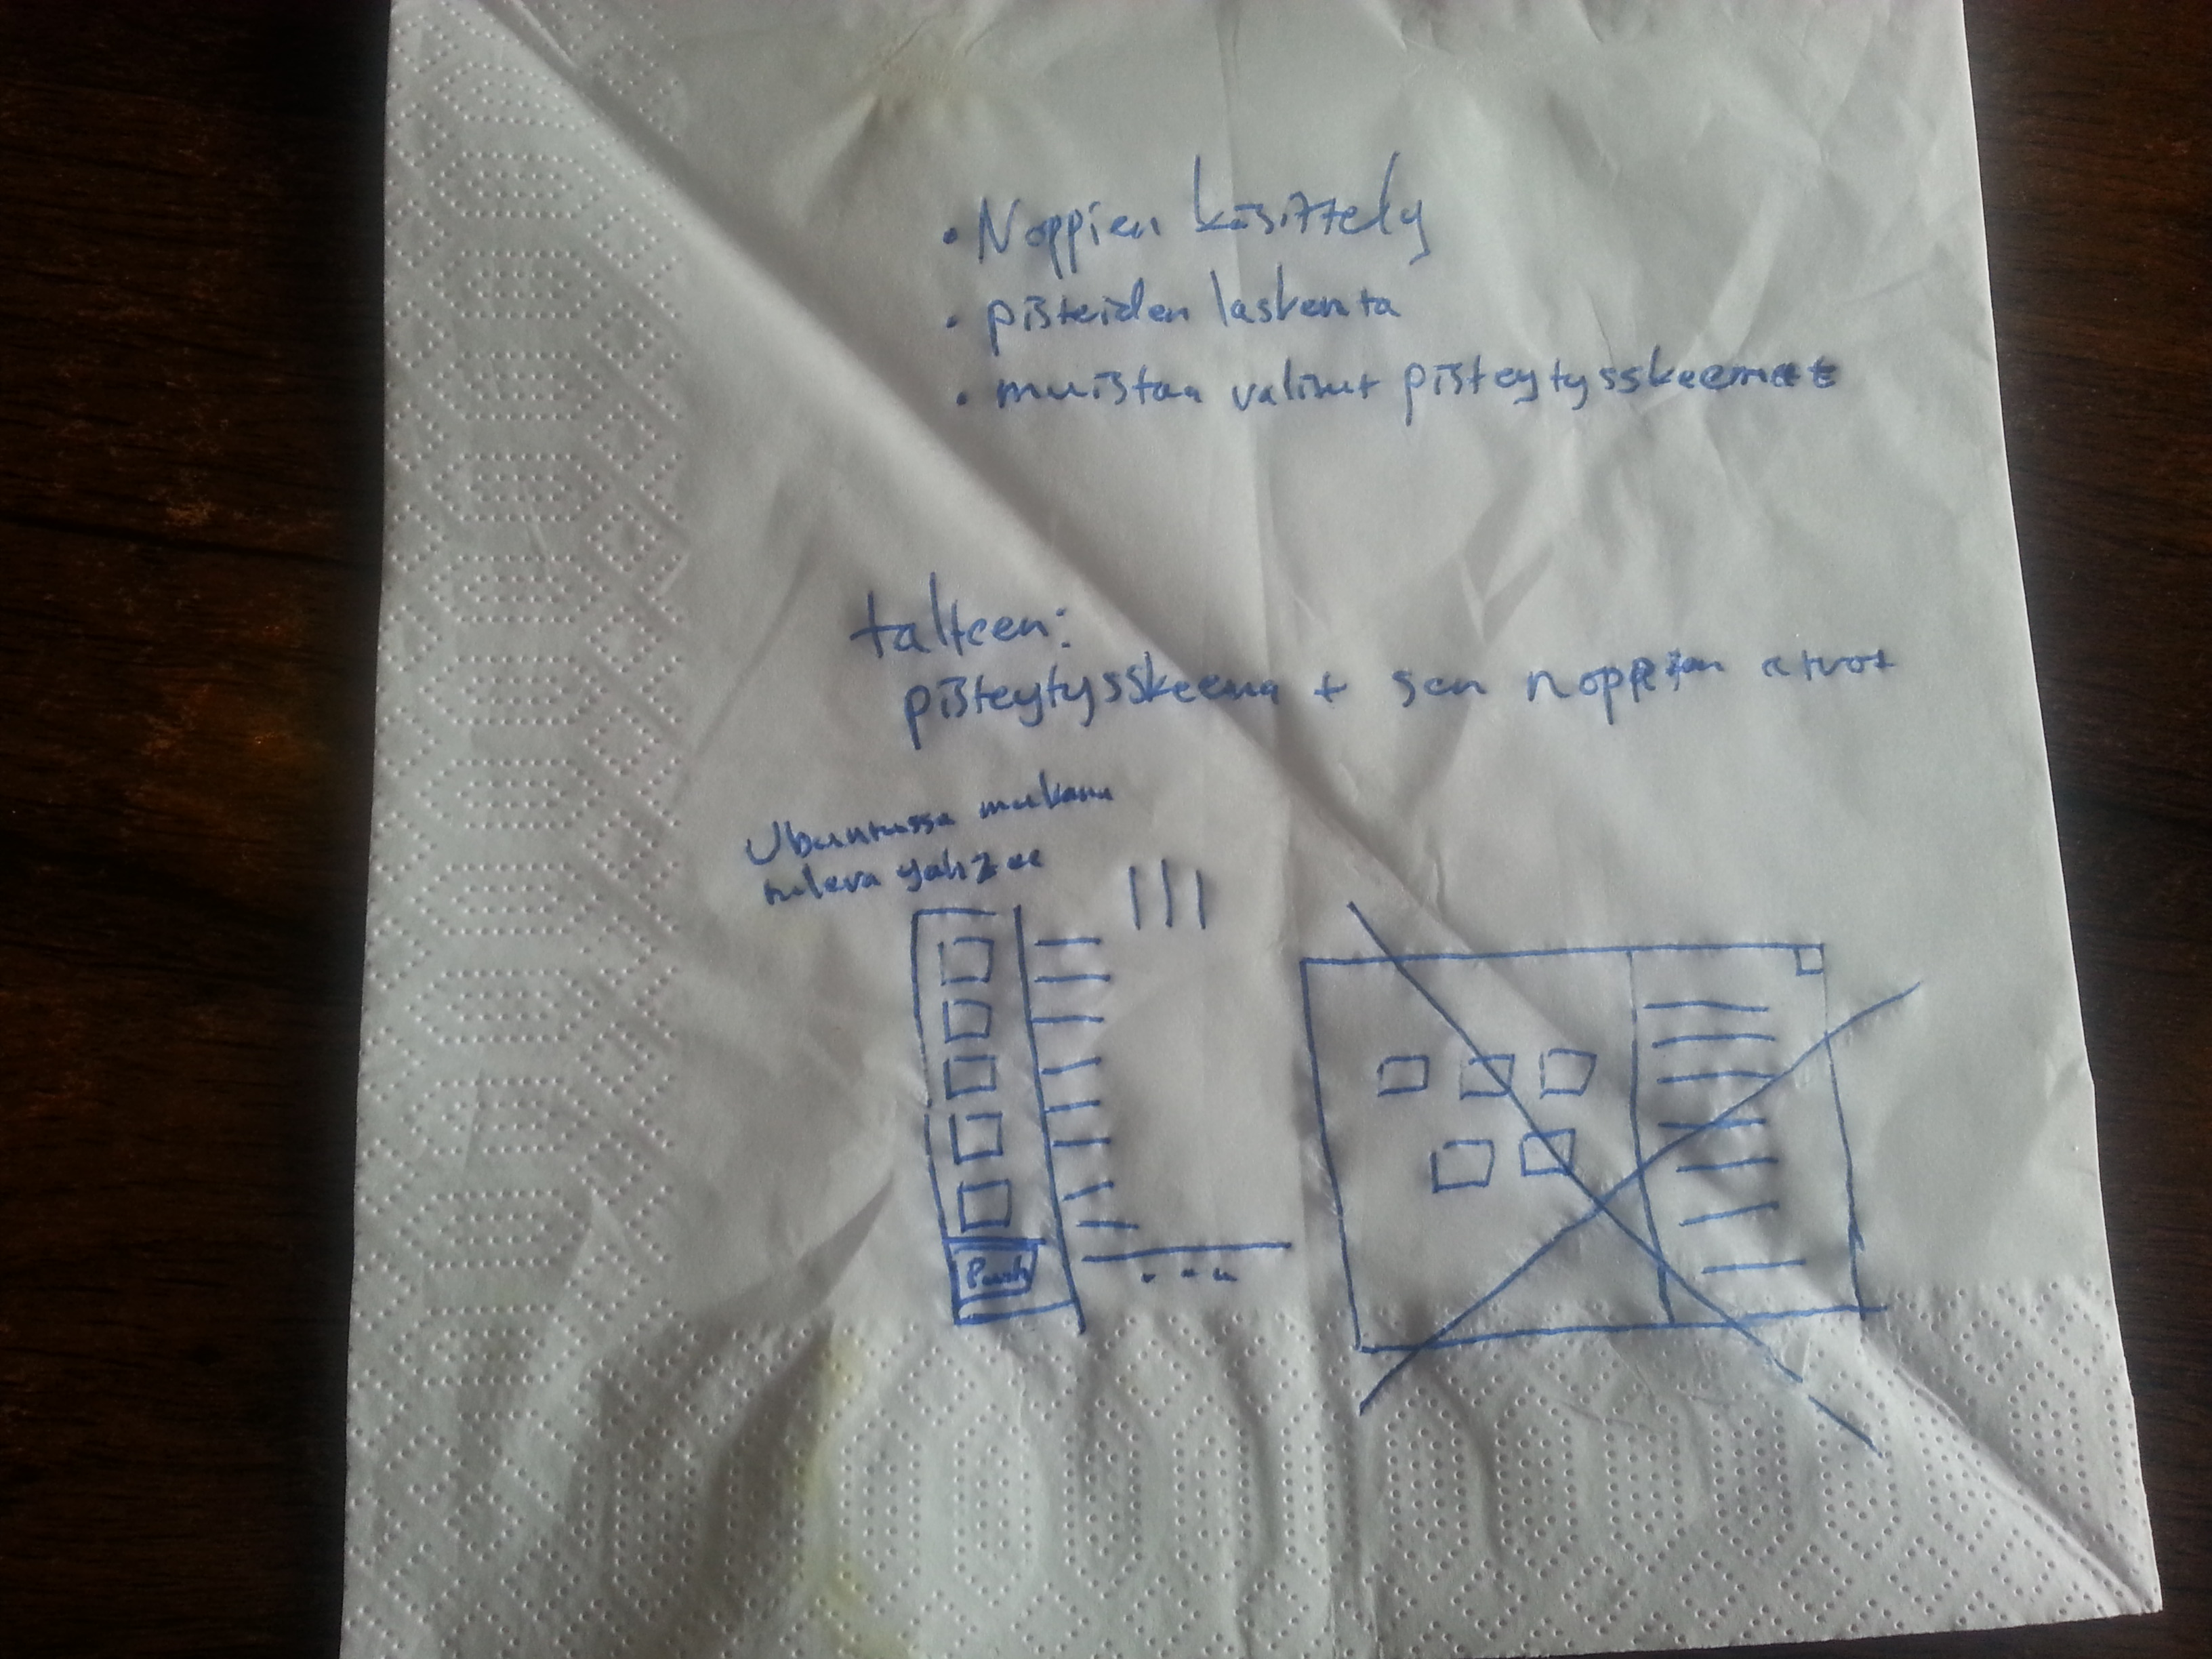 • Noppien käsittely
• pisteiden laskenta
• muistaa valitut pisteytysskeemat
talteen:
pisteytysskeema + sen noppien arvot
Ubuntussa mukana
tuleva yahzee